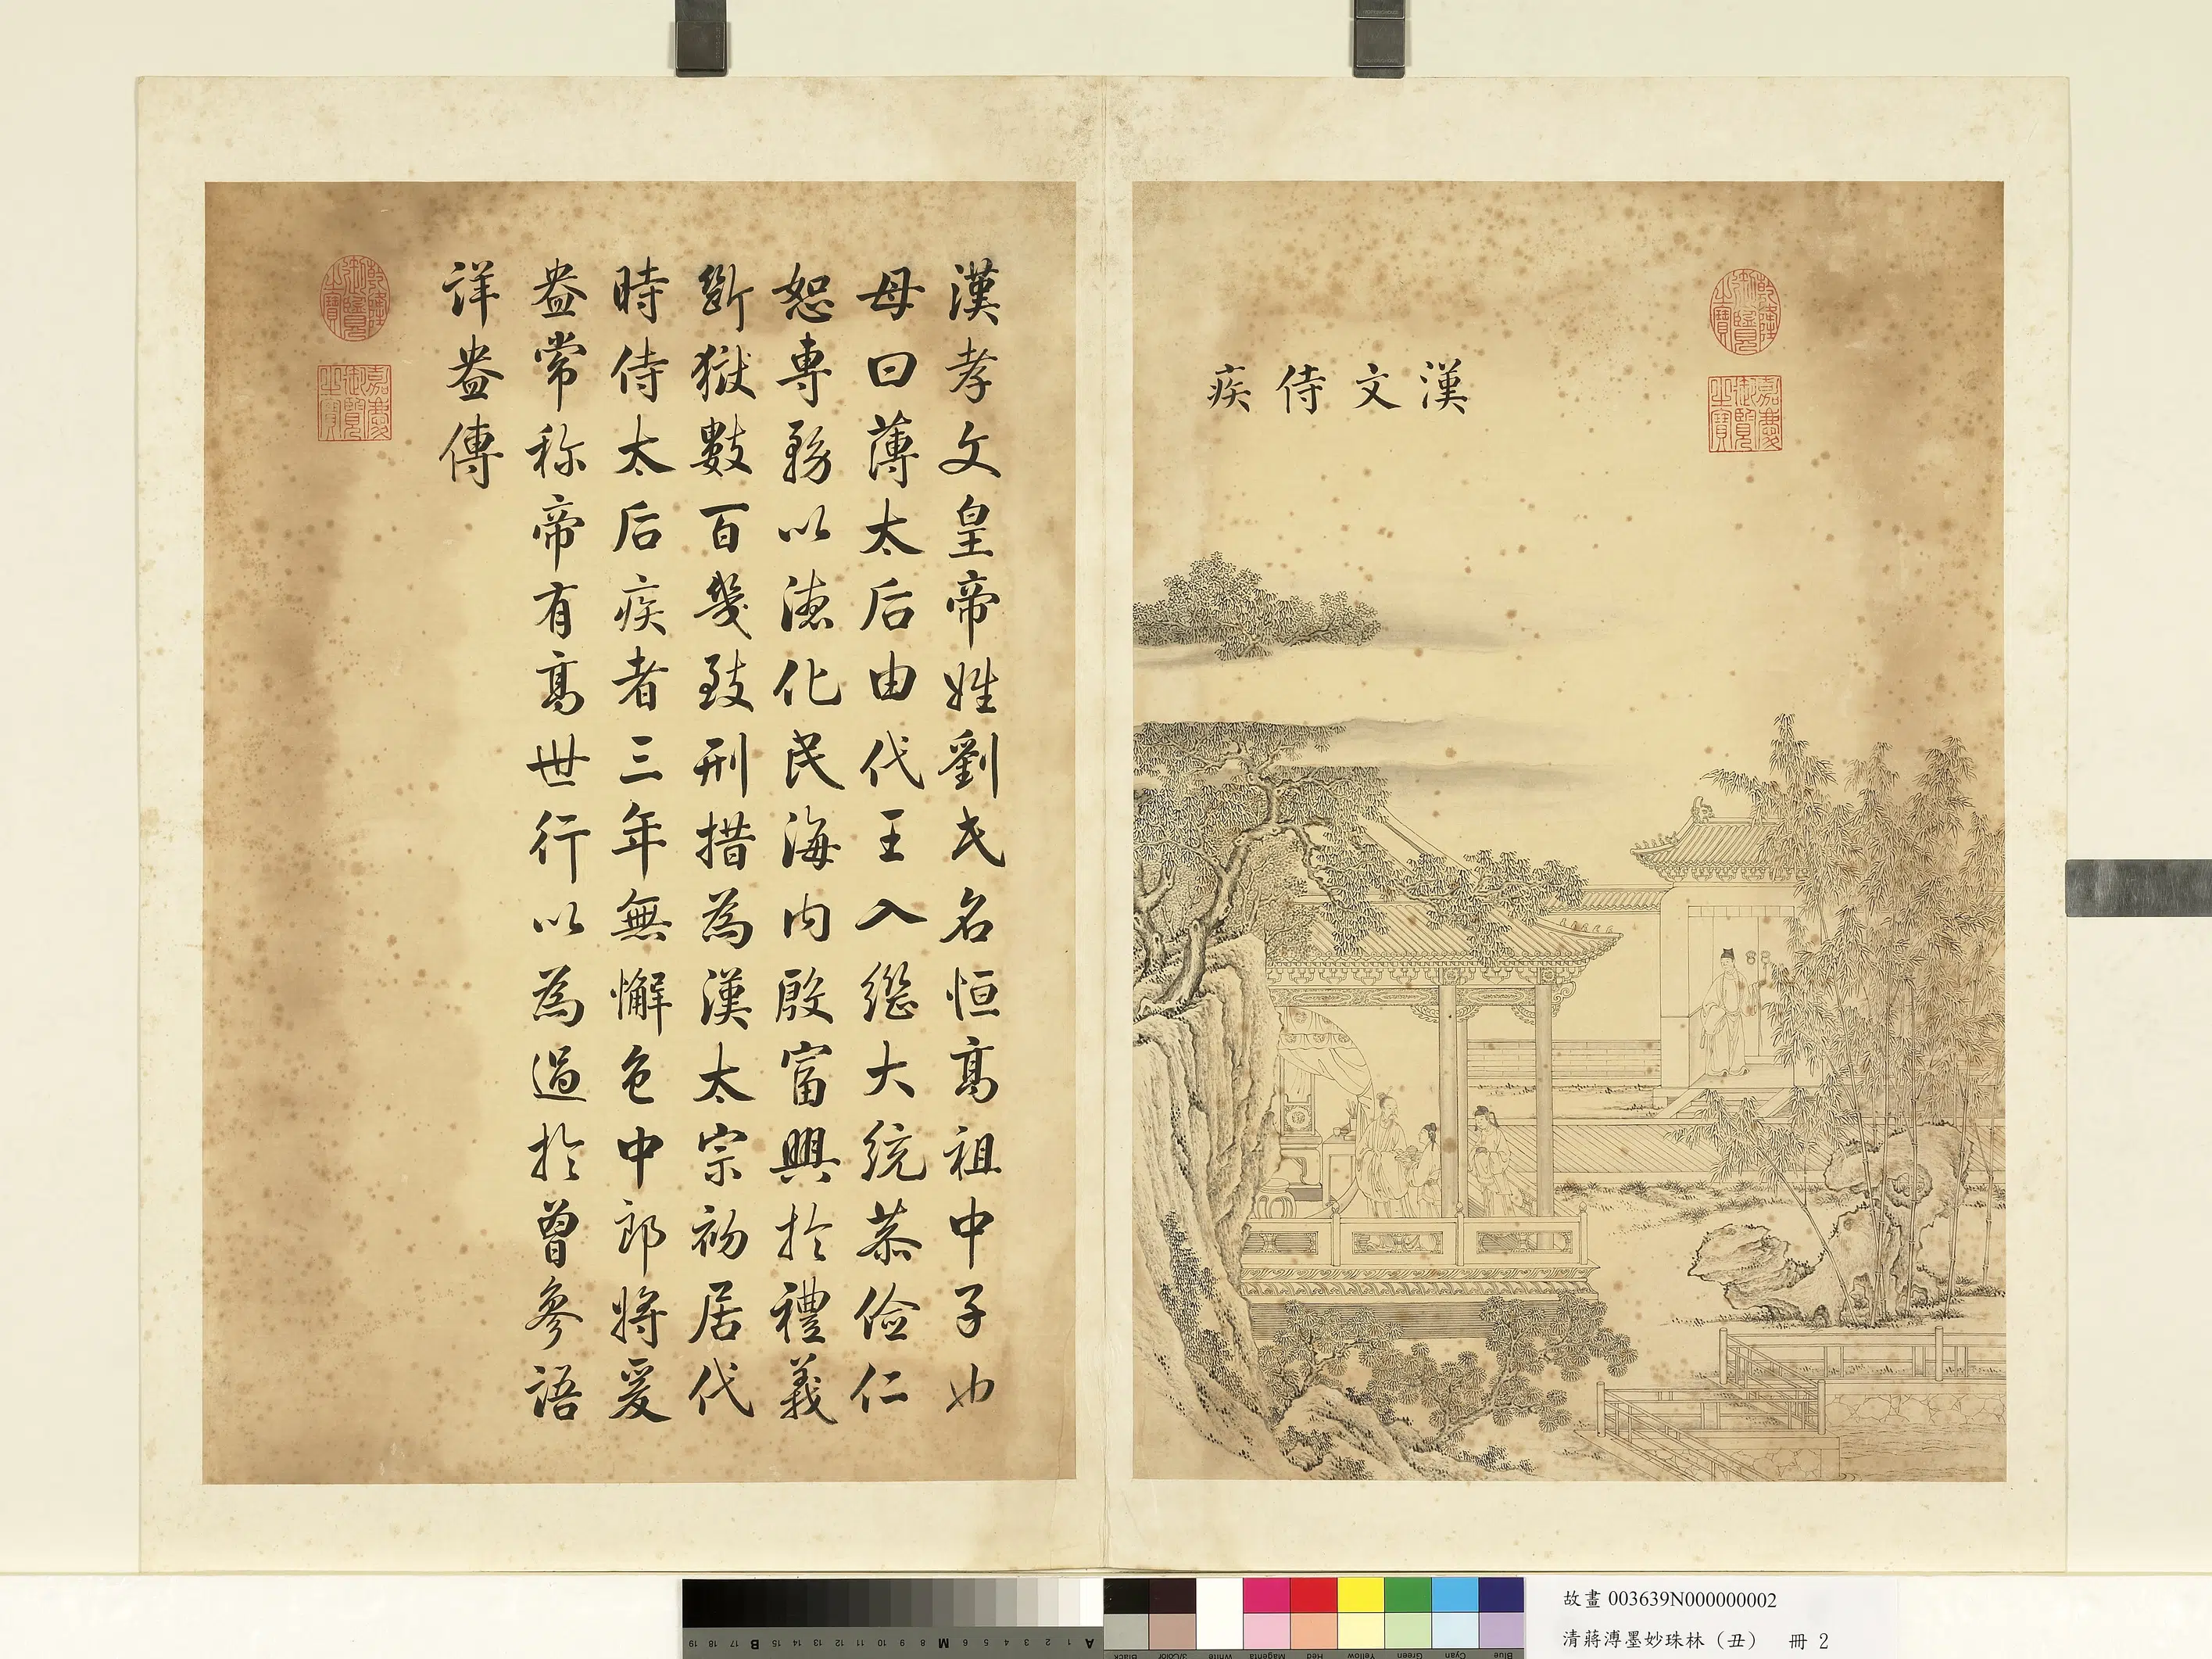 漢文侍疾
乾隆御覽之寶
嘉慶御覽之寶
漢孝文皇帝姓劉氏名恒高祖中子也
母曰薄太后由代王入繼大統恭儉仁
恕專務以德化民海內殷富興於禮義
斷獄數百幾致刑措為漢太宗初居代
時侍太后疾者三年無懈色中郎將爰
盎常称帝有高世行以為過於曾參語
詳盎傳
乾隆御覽之寶
嘉慶御覽之寶
故畫 003639N000000002
清蔣溥墨妙珠林（丑） 冊 2